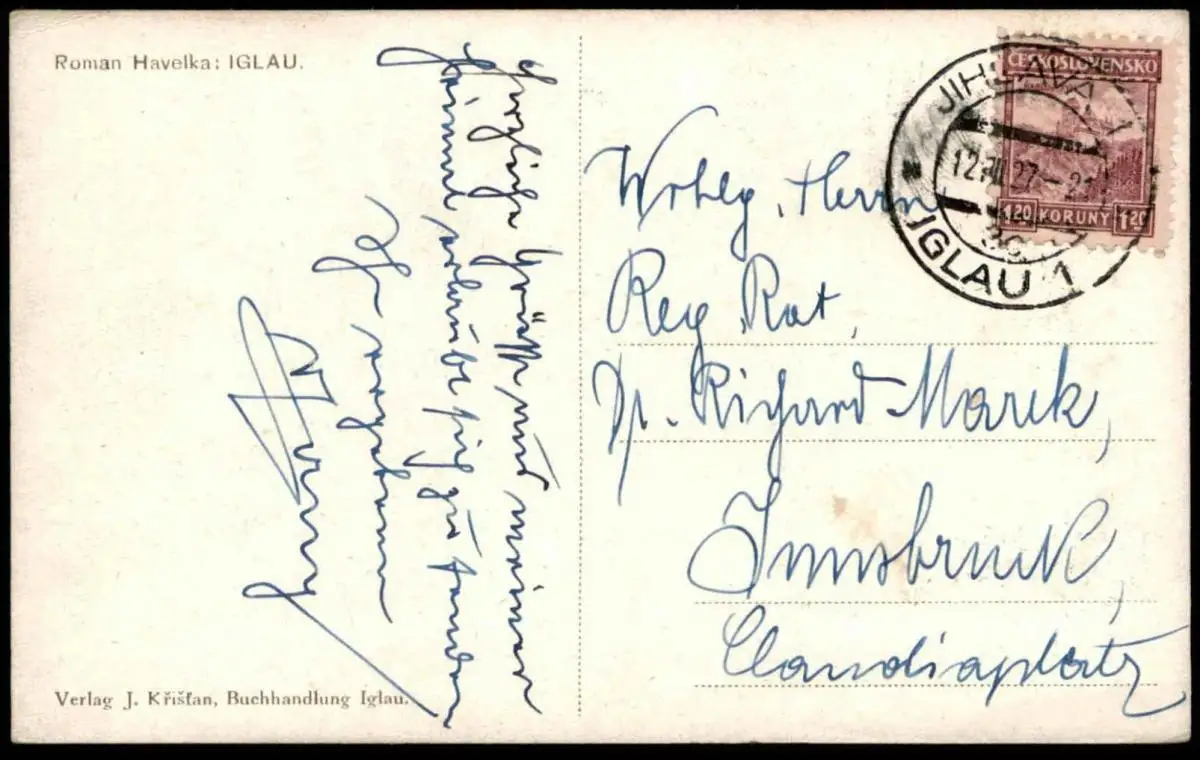 Roman Havelka: IGLAU.
Herzliche Grüße aus meiner
Heimat erlaube sich zu senden
Ihr ergebener
ČESKOSLOVENSKO
1·20 KORUNY 1·20
JIHLAVA 1
27
IGLAU 1
Wohlg. Herrn
Reg. Rat,
Dr. Richard Marek,
Innsbruck,
Claudiaplatz
Verlag J. Křišťan, Buchhandlung Iglau.